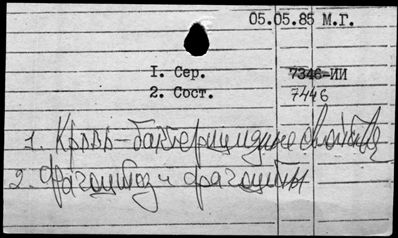 05.05.85 М.Г.
1. Сер. 7346-ИИ
2. Сост. 7446
1. Кровь - бактерицидные свойства
2. Фагоцитоз и фагоциты